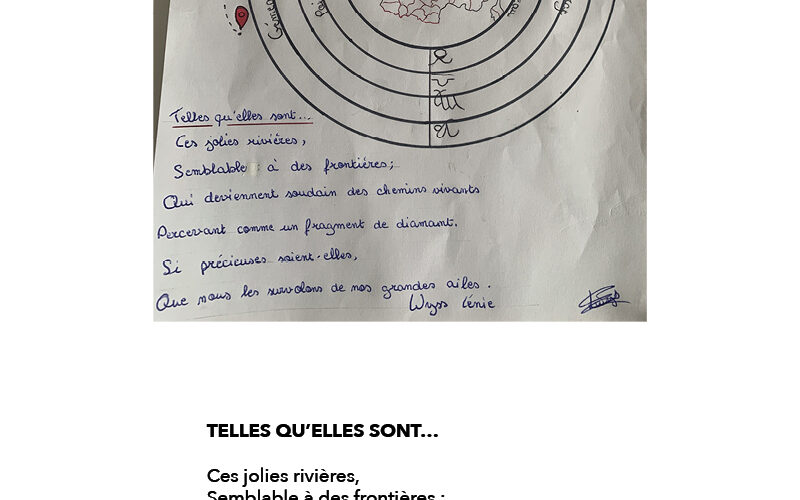 Telles qu'elles sont...
Ces jolies rivières,
Semblable à des frontières;
Qui deviennent soudain des chemins vivants
Percevant comme un fragment de diamant.
Si précieuses soient-elles,
Que nous les survolons de nos grandes ailes.
Wyss Lénie
TELLES QU'ELLES SONT...
Ces jolies rivières,
Semblable à des frontières ;